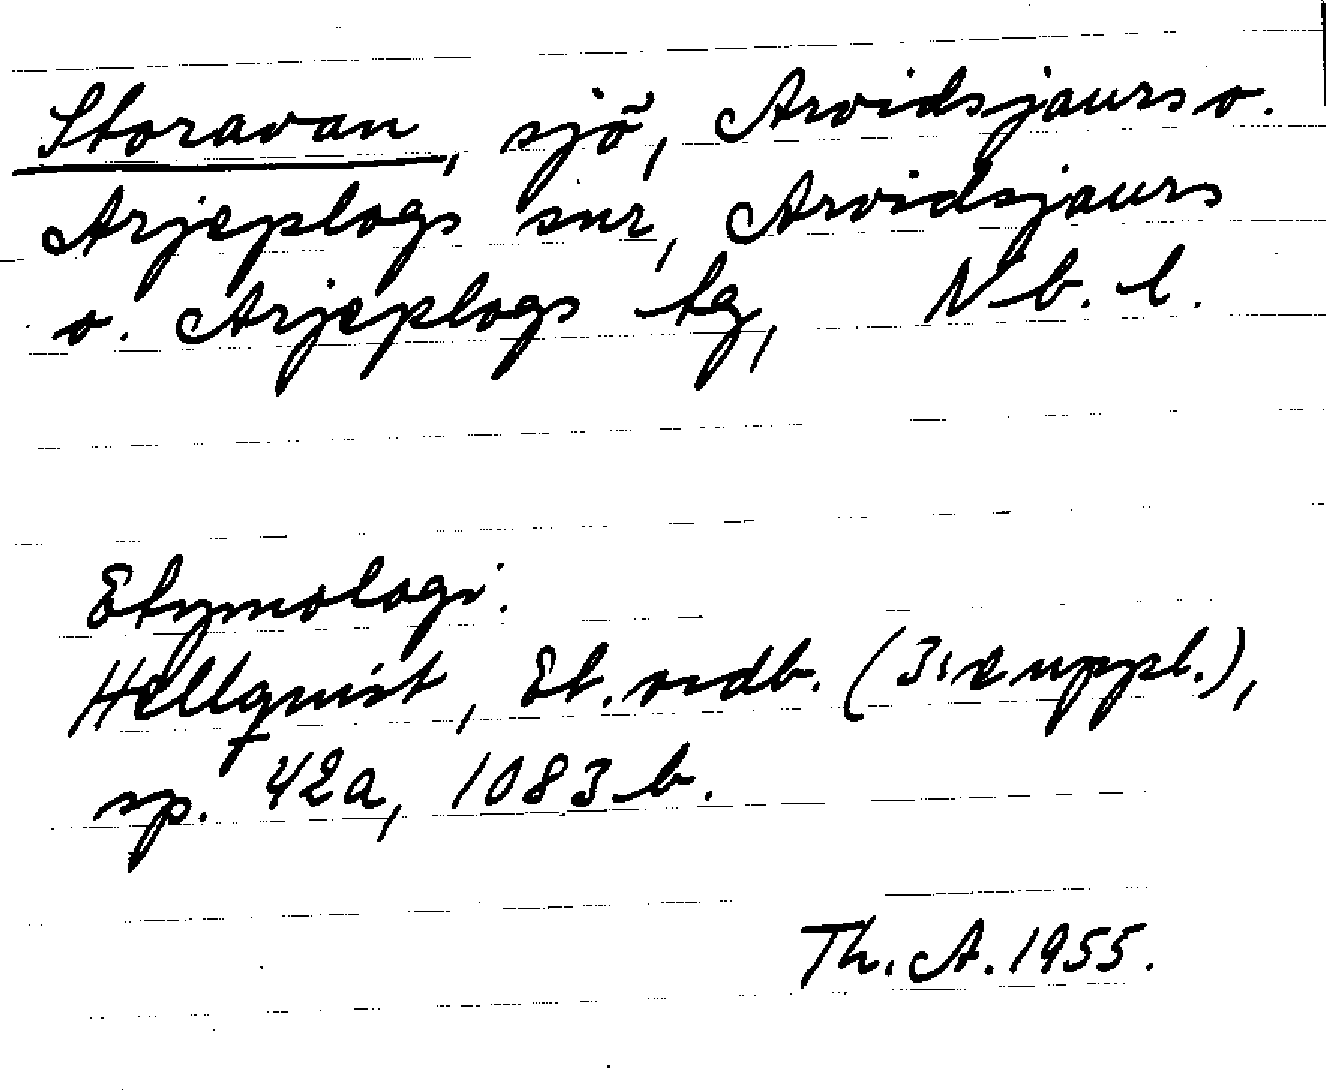 Storavan, sjö, Arvidsjaurs o.
Arjeplogs snr, Arvidsjaurs
o. Arjeplogs tg, Nb. l.
Etymologi:
Hellquist, Et. ordb. (3:e uppl.),
sp. 42a, 1083 b.
Th. A. 1955.